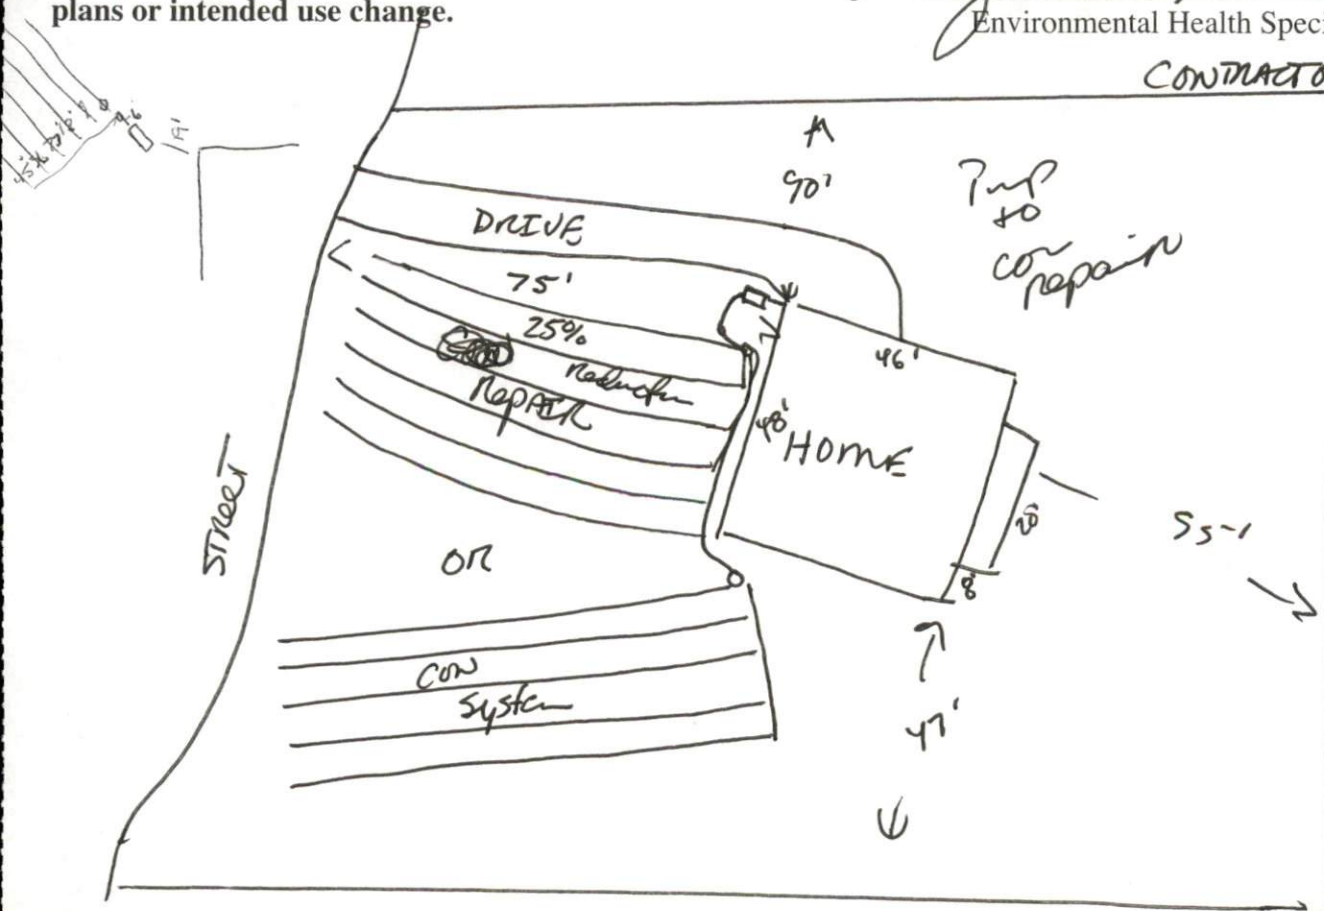 plans or intended use change.
Environmental Health Spec
CONTRACTO
90'
to
con
repair
DRIVE
75'
25%
Reduction
RepAIR
46'
48'
HOME
20'
8'
STREET
SS-1
OR
con
System
47'